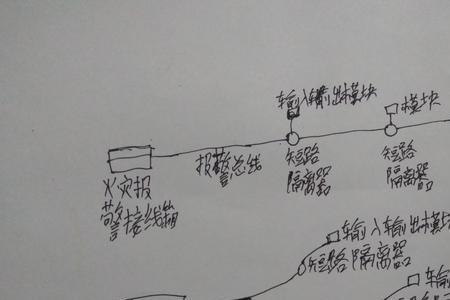 输入输出模块
模块
报警总线
短路
隔离器
短路
隔离器
火灾报
警接线箱
输入输出模块
短路隔离器
输